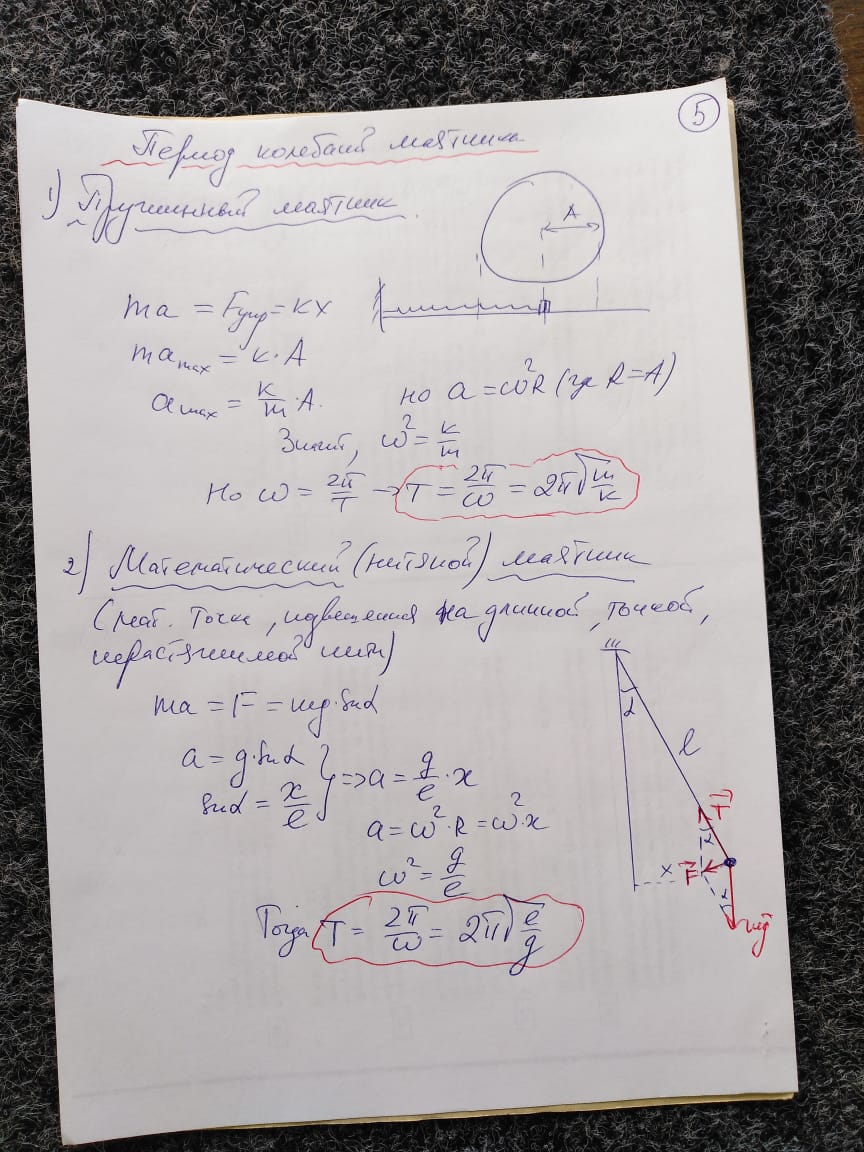 5
Период колебаний маятника
1) Пружинный маятник.
A
ma = Fупр = kx
ma max = k·A
a max = k/m · A. но a = ω²R (где R=A)
Значит, ω² = k/m
Но ω = 2π/T → T = 2π/ω = 2π√m/k
2) Математический (нитяной) маятник
(мат. точка, подвешенная на длинной, тонкой,
нерастяжимой нити)
ma = F = mg·sinα
α
l
a = g·sinα
sinα = x/l } => a = g/l · x
a = ω²·R = ω²·x
ω² = g/l
T
α
x F
α
mg
Тогда T = 2π/ω = 2π√l/g